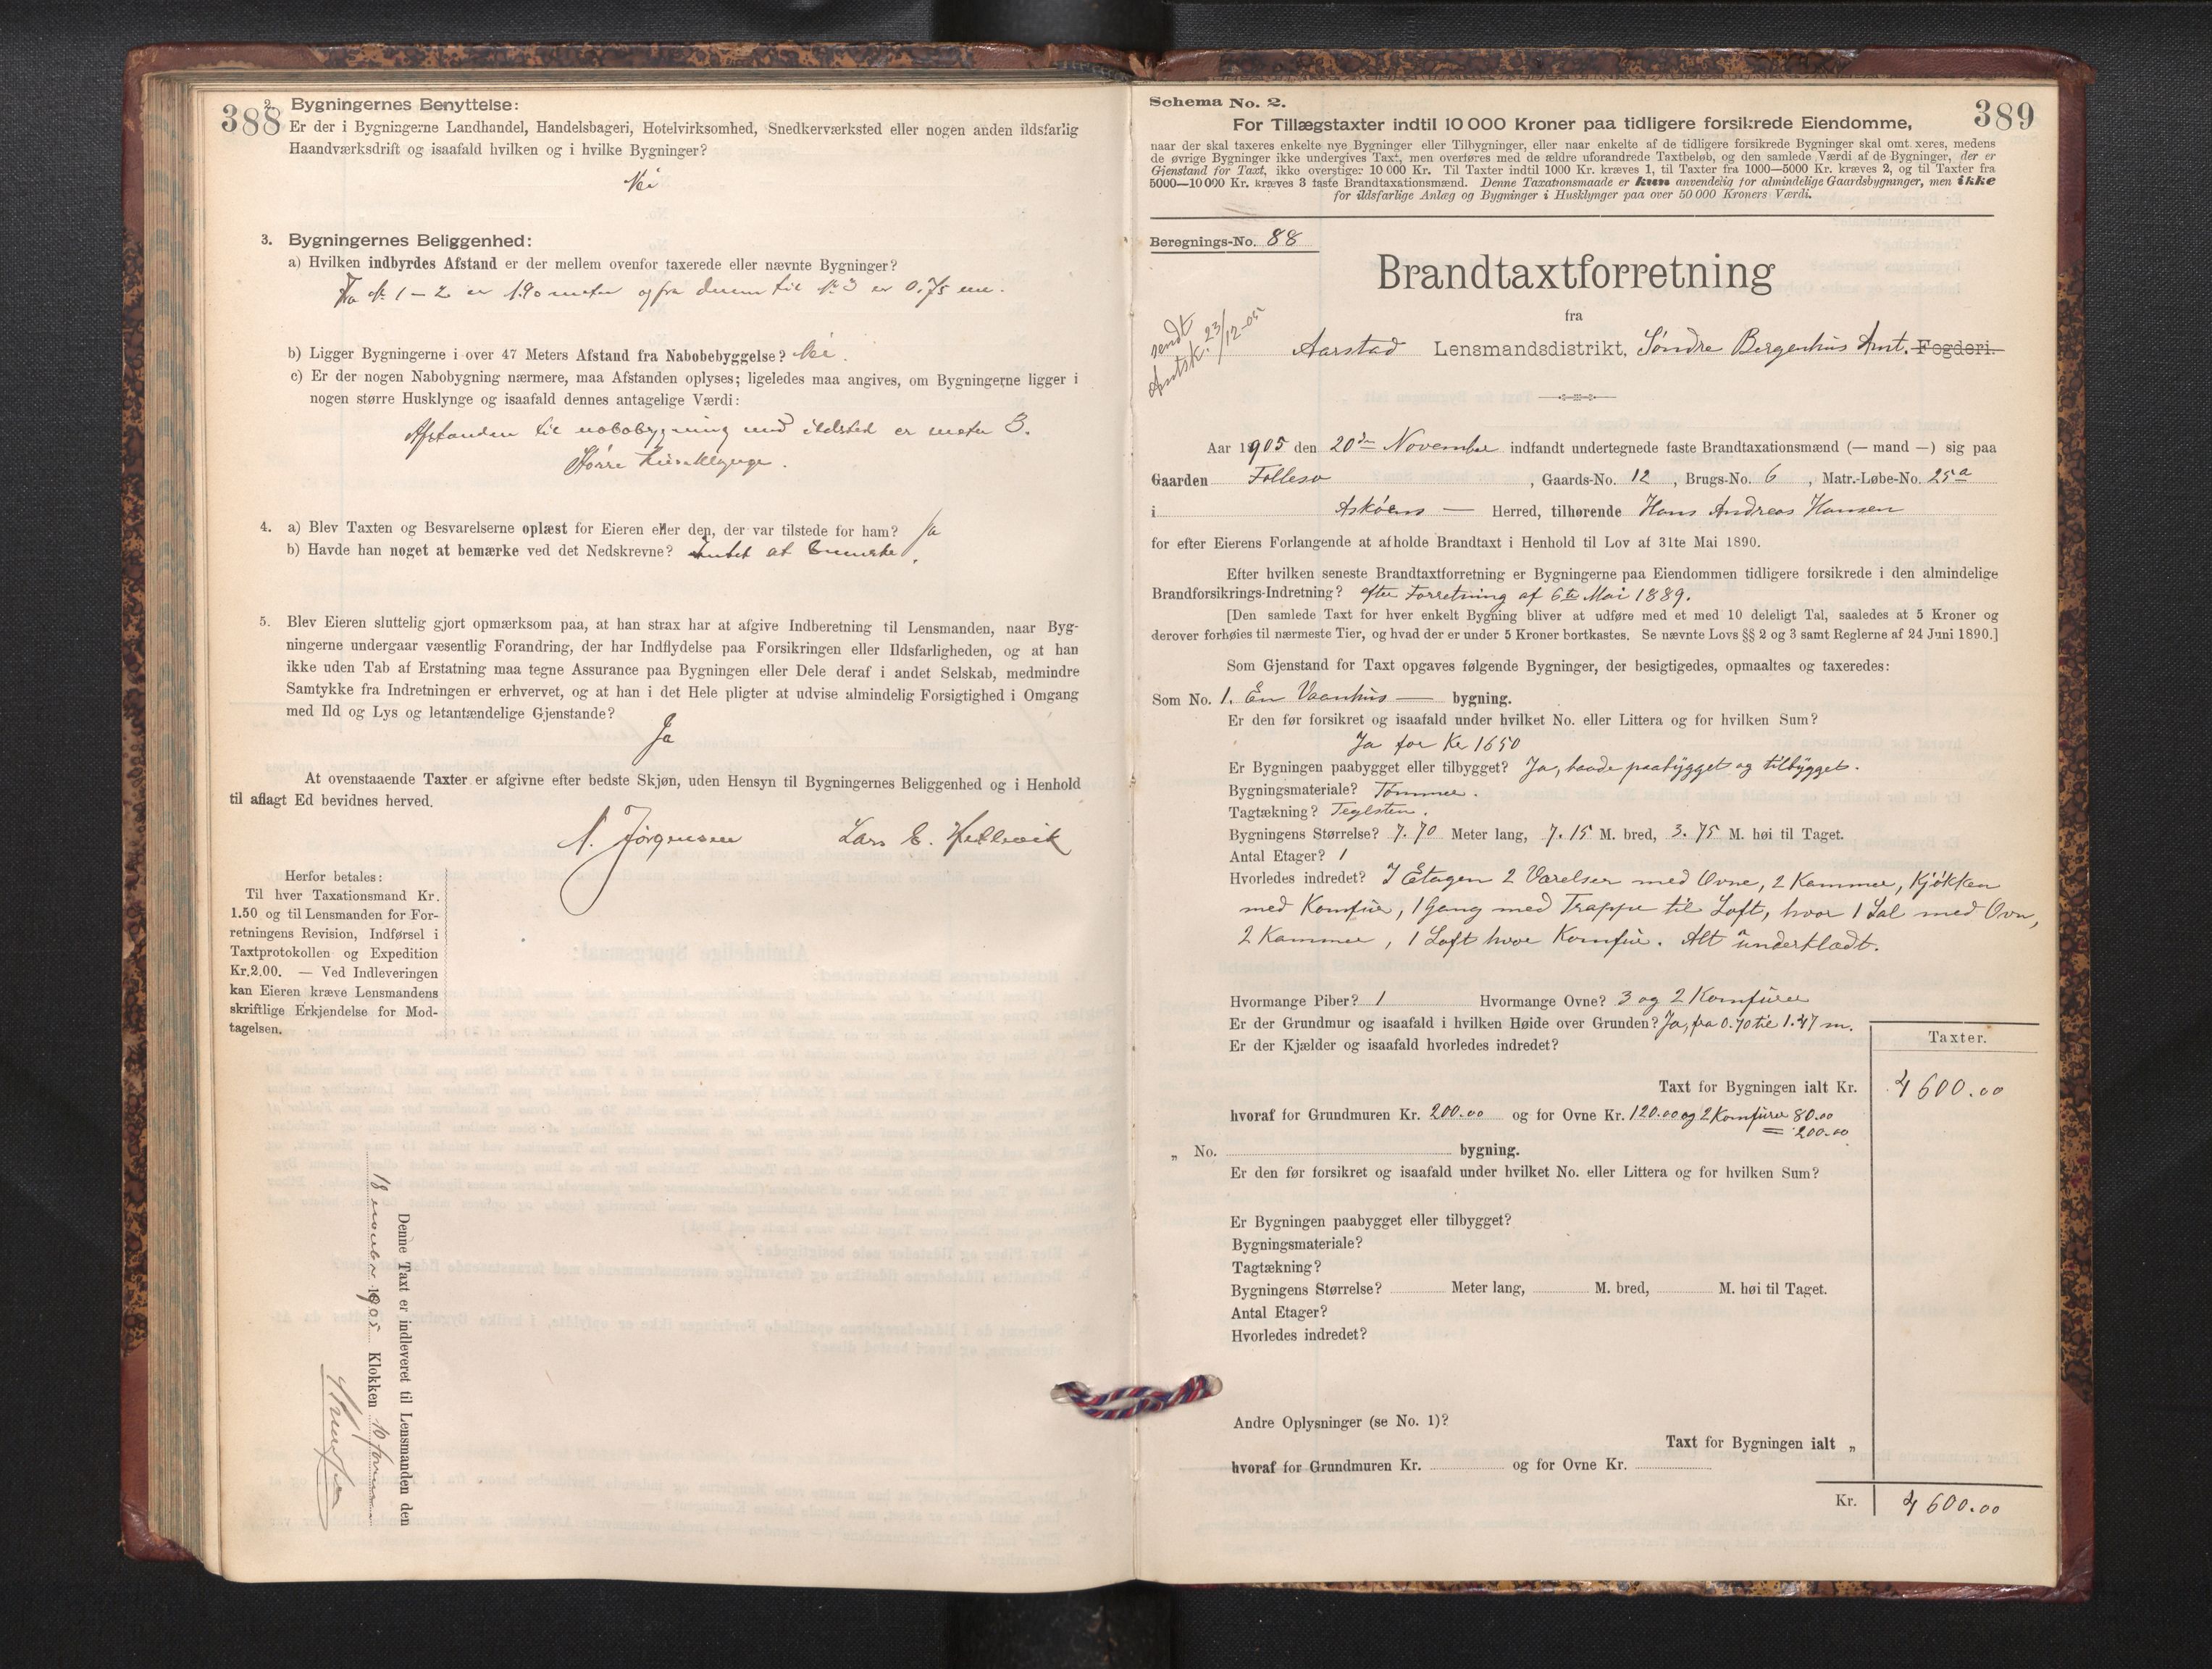 388
2. Bygningernes Benyttelse:
Er der i Bygningerne Landhandel, Handelsbageri, Hotelvirksomhed, Snedkerværksted eller nogen anden ildsfarlig
Haandværksdrift og isaafald hvilken og i hvilke Bygninger?
Nei
3. Bygningernes Beliggenhed:
a) Hvilken indbyrdes Afstand er der mellem ovenfor taxerede eller nævnte Bygninger?
Fra No 1 - 2 er 1.90 meter og fra denne til No 3 er 0.75 cm.
b) Ligger Bygningerne i over 47 Meters Afstand fra Nabobebyggelse? Nei.
c) Er der nogen Nabobygning nærmere, maa Afstanden oplyses; ligeledes maa angives, om Bygningerne ligger i
nogen større Husklynge og isaafald dennes antagelige Værdi:
Afstanden til nabobygning med ildsted er meter 3.
Större Huseklynge.
4. a) Blev Taxten og Besvarelserne oplæst for Eieren eller den, der var tilstede for ham? Ja
b) Havde han noget at bemærke ved det Nedskrevne? Intet at bemerke.
5. Blev Eieren sluttelig gjort opmærksom paa, at han strax har at afgive Indberetning til Lensmanden, naar Byg-
ningerne undergaar væsentlig Forandring, der har Indflydelse paa Forsikringen eller Ildsfarligheden, og at han
ikke uden Tab af Erstatning maa tegne Assurance paa Bygningen eller Dele deraf i andet Selskab, medmindre
Samtykke fra Indretningen er erhvervet, og at han i det Hele pligter at udvise almindelig Forsigtighed i Omgang
med Ild og Lys og letantændelige Gjenstande?
Ja
At ovenstaaende Taxter er afgivne efter bedste Skjøn, uden Hensyn til Bygningernes Beliggenhed og i Henhold
til aflagt Ed bevidnes herved.
N. Jørgensen Lars E. Hetlevik
Herfor betales:
Til hver Taxationsmand Kr.
1.50 og til Lensmanden for For-
retningens Revision, Indførsel i
Taxtprotokollen og Expedition
Kr. 2.00. — Ved Indleveringen
kan Eieren kræve Lensmandens
skriftlige Erkjendelse for Mod-
tagelsen.
Denne Taxt er indleveret til Lensmanden den
18 november 1905 Klokken 10 form
389
Schema No. 2.
For Tillægstaxter indtil 10 000 Kroner paa tidligere forsikrede Eiendomme,
naar der skal taxeres enkelte nye Bygninger eller Tilbygninger, eller naar enkelte af de tidligere forsikrede Bygninger skal omtaxeres, medens
de øvrige Bygninger ikke undergives Taxt, men overføres med de ældre uforandrede Taxtbeløb, og den samlede Værdi af de Bygninger, der er
Gjenstand for Taxt, ikke overstiger 10 000 Kr. Til Taxter indtil 1000 Kr. kræves 1, til Taxter fra 1000—5000 Kr. kræves 2, og til Taxter fra
5000—10 000 Kr. kræves 3 faste Brandtaxationsmænd. Denne Taxationsmaade er kun anvendelig for almindelige Gaardsbygninger, men ikke
for ildsfarlige Anlæg og Bygninger i Husklynger paa over 50 000 Kroners Værdi.
Beregnings-No. 88
Brandtaxtforretning
fra
sendt
Amtsk. 23/12-05
Aarstad Lensmandsdistrikt, Søndre Bergenhus Amt. Fogderi.
Aar 1905 den 20de November indfandt undertegnede faste Brandtaxationsmænd (— mand —) sig paa
Gaarden Follesø, Gaards-No. 12, Brugs-No. 6, Matr.-Løbe-No. 25a
i Askøens — Herred, tilhørende Hans Andreas Hansen
for efter Eierens Forlangende at afholde Brandtaxt i Henhold til Lov af 31te Mai 1890.
Efter hvilken seneste Brandtaxtforretning er Bygningerne paa Eiendommen tidligere forsikrede i den almindelige
Brandforsikrings-Indretning? efter Forretning af 6te Mai 1889.
[Den samlede Taxt for hver enkelt Bygning bliver at udføre med et med 10 deleligt Tal, saaledes at 5 Kroner og
derover forhøies til nærmeste Tier, og hvad der er under 5 Kroner bortkastes. Se nævnte Lovs §§ 2 og 3 samt Reglerne af 24 Juni 1890.]
Som Gjenstand for Taxt opgaves følgende Bygninger, der besigtigedes, opmaaltes og taxeredes:
Som No. 1. En Vaanhus — bygning.
Er den før forsikret og isaafald under hvilket No. eller Littera og for hvilken Sum?
Ja for Kr 1650
Er Bygningen paabygget eller tilbygget? Ja, baade paabygget og tilbygget.
Bygningsmateriale? Tømmer.
Tagtækning? Teglsten.
Bygningens Størrelse? 7.70 Meter lang, 7.15 M. bred, 3.75 M. høi til Taget.
Antal Etager? 1
Hvorledes indredet? I Etagen 2 Værelser med Ovne, 2 Kammer, Kjøkken
med Komfur, 1 Gang med Trappe til Loft, hvor 1 Sal med Ovn,
2 Kammer, 1 Loft hvor Komfur. Alt underklædt.
Hvormange Piber? 1 Hvormange Ovne? 3 og 2 Komfurer
Er der Grundmur og isaafald i hvilken Høide over Grunden? Ja, fra 0.70 til 1.47 m.
Er der Kjælder og isaafald hvorledes indredet?
Taxter.
Taxt for Bygningen ialt Kr. 4600.00
hvoraf for Grundmuren Kr. 200.00 og for Ovne Kr. 120.00 og 2 Komfurer 80.00
= 200.00
„ No. bygning.
Er den før forsikret og isaafald under hvilket No. eller Littera og for hvilken Sum?
Er Bygningen paabygget eller tilbygget?
Bygningsmateriale?
Tagtækning?
Bygningens Størrelse? Meter lang, M. bred, M. høi til Taget.
Antal Etager?
Hvorledes indredet?
Andre Oplysninger (se No. 1)?
Taxt for Bygningen ialt „
hvoraf for Grundmuren Kr. og for Ovne Kr.
Kr. 4600.00